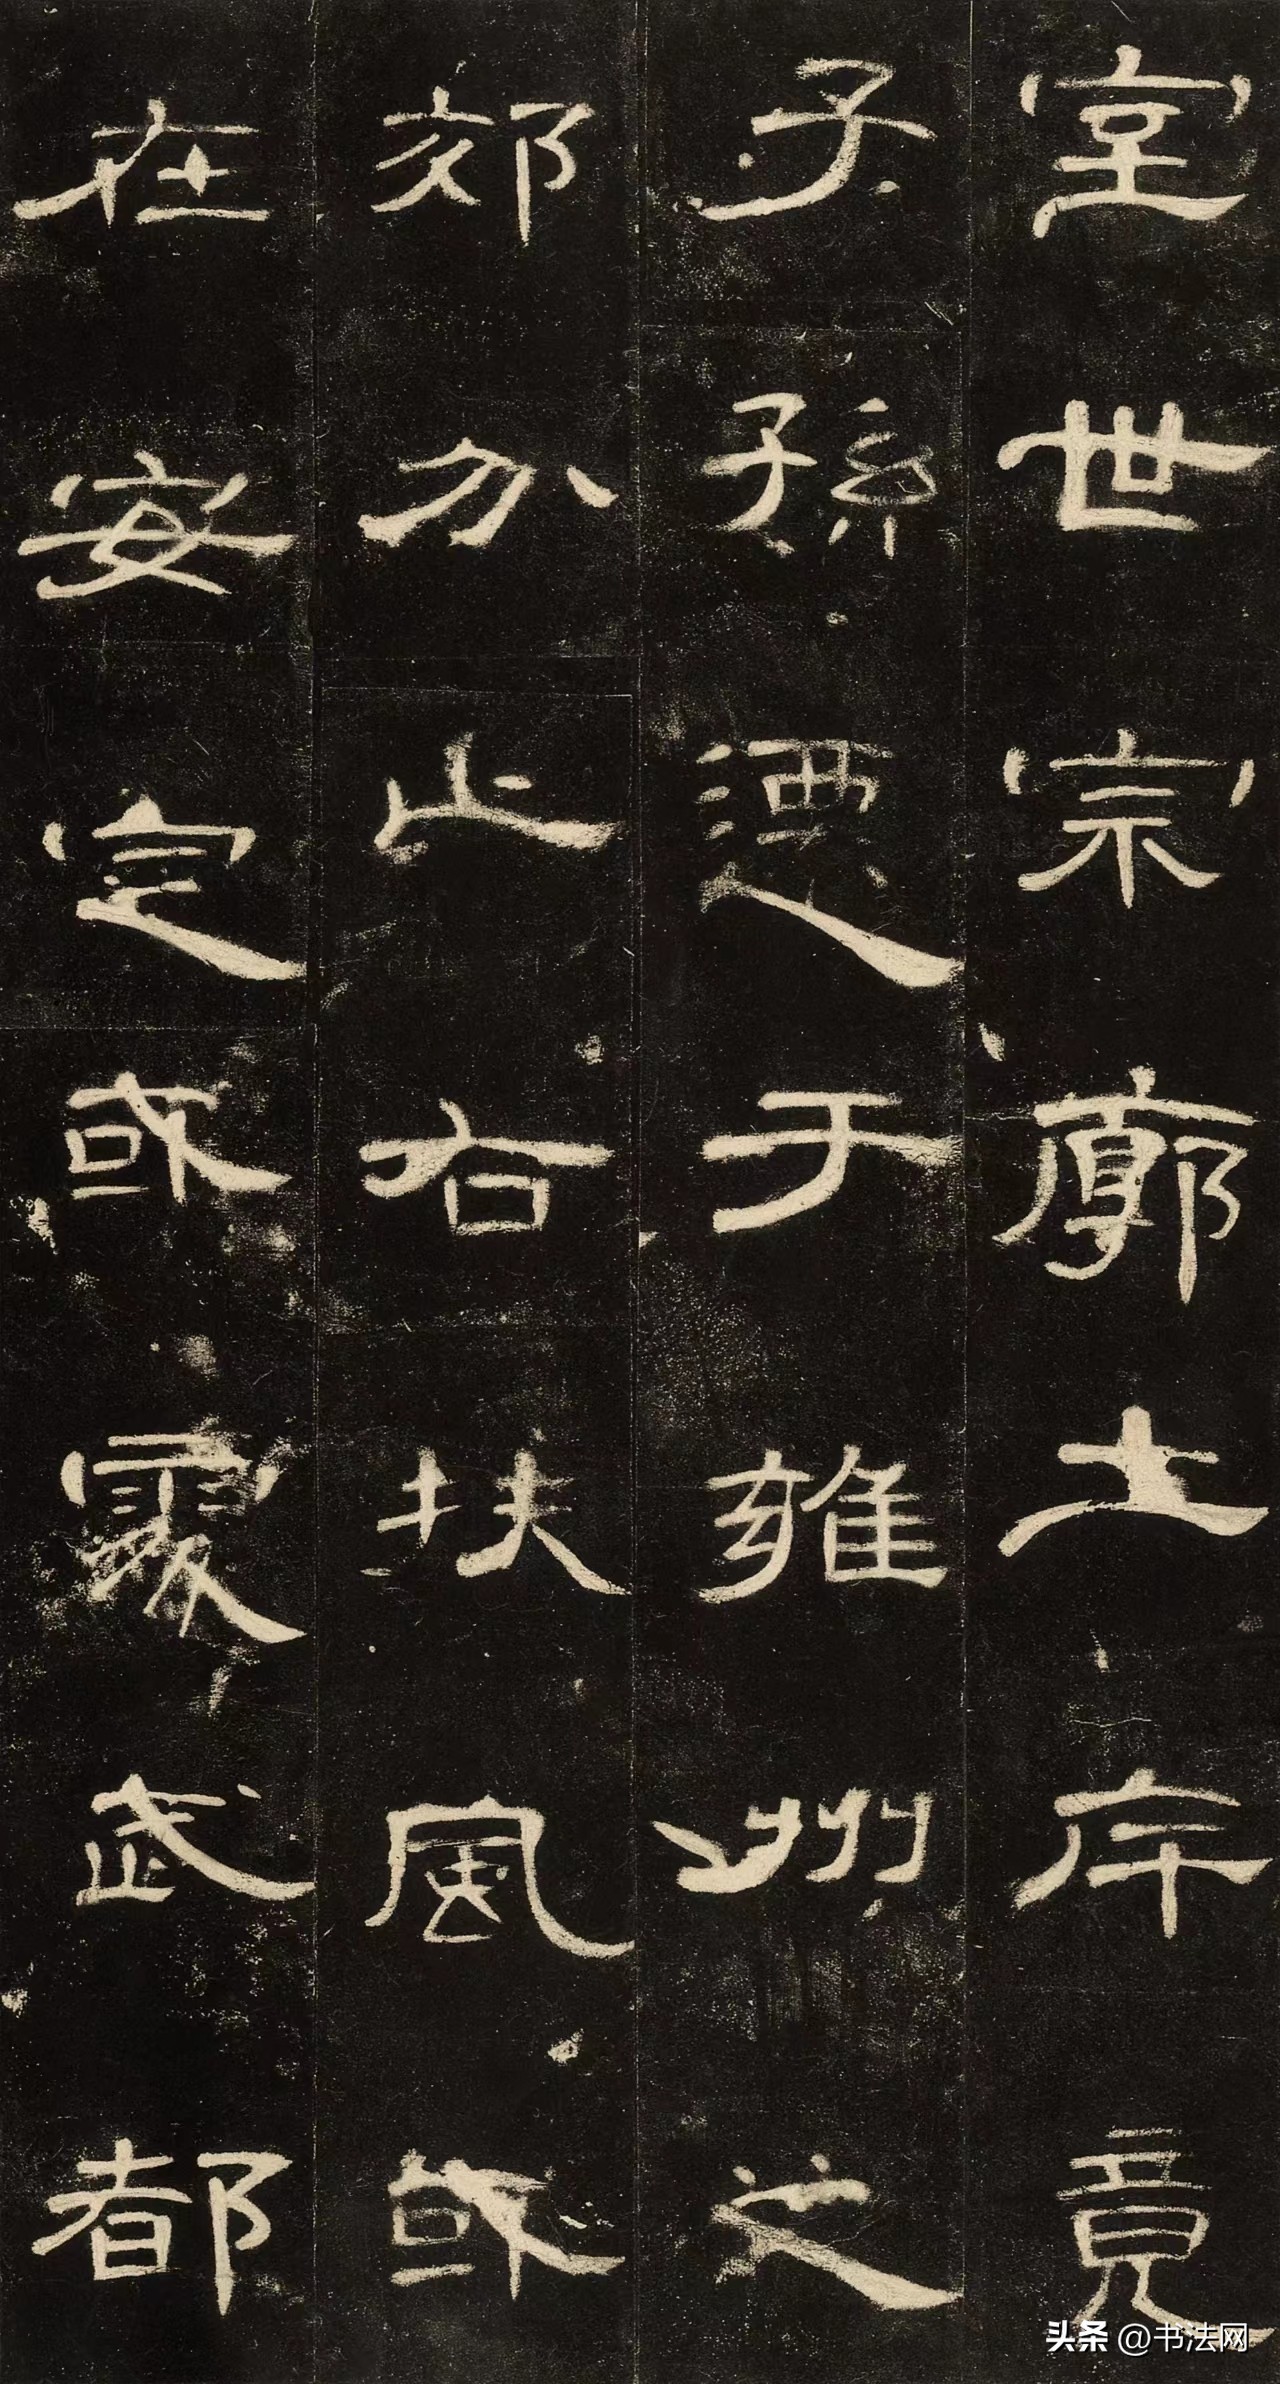 室世宗廓土斥竟
子孫遷于雍州之
郊分止右扶風或
在安定或處武都
头条 @书法网